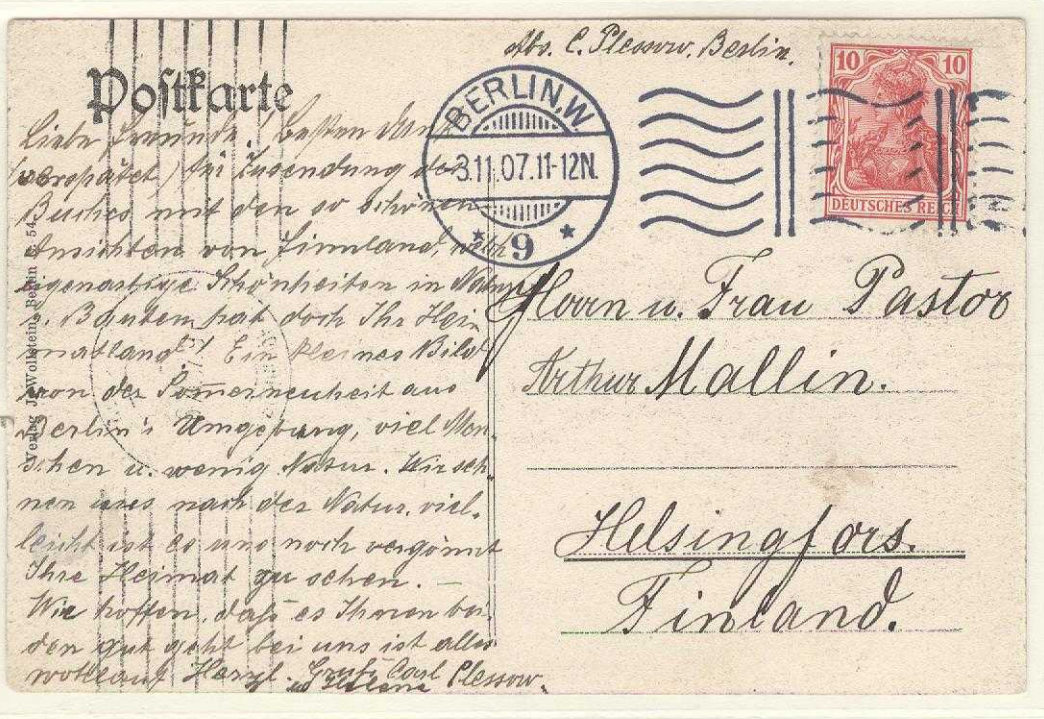 Abs. C. Plessow. Berlin.
Postkarte
BERLIN.W.
3.11.07.11-12N.
* 9 *
10 10
DEUTSCHES REICH
Liebe Freunde. Besten Dank
(verspätet) für Zusendung des
Buches mit den so schönen
Ansichten von Finnland, welch
eigenartige Schönheiten in Natur
u. Bauten hat doch Ihr Hei-
matland! Ein kleines Bild
von der
Berlin's Umgebung, viel Men-
schen u. wenig Natur. Wir seh-
nen uns nach der Natur, viel-
leicht ist es uns noch vergönnt
Ihre Heimat zu sehen.
Wir hoffen, daß es Ihnen bei-
den gut geht bei uns ist alles
wohlauf Herzl. Gruß Carl Plessow.
u Helene
Verlag J. Wollstein, Berlin C. 54.
Herrn u. Frau Pastor
Arthur Mallin.
Helsingfors.
Finland.